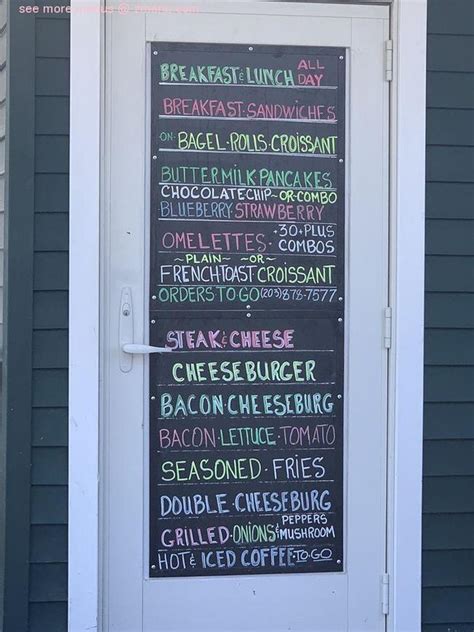 BREAKFAST & LUNCH ALL DAY
BREAKFAST·SANDWICHES
ON·BAGEL·ROLLS·CROISSANT
BUTTERMILK PANCAKES
CHOCOLATE CHIP~OR·COMBO
BLUEBERRY·STRAWBERRY
OMELETTES·+30+PLUS COMBOS
~PLAIN~OR~
FRENCH TOAST CROISSANT
ORDERS TO GO (203) 878-7577
STEAK & CHEESE
CHEESEBURGER
BACON·CHEESEBURG
BACON·LETTUCE·TOMATO
SEASONED·FRIES
DOUBLE·CHEESEBURG
GRILLED·ONIONS & PEPPERS MUSHROOM
HOT & ICED COFFEE·TO·GO